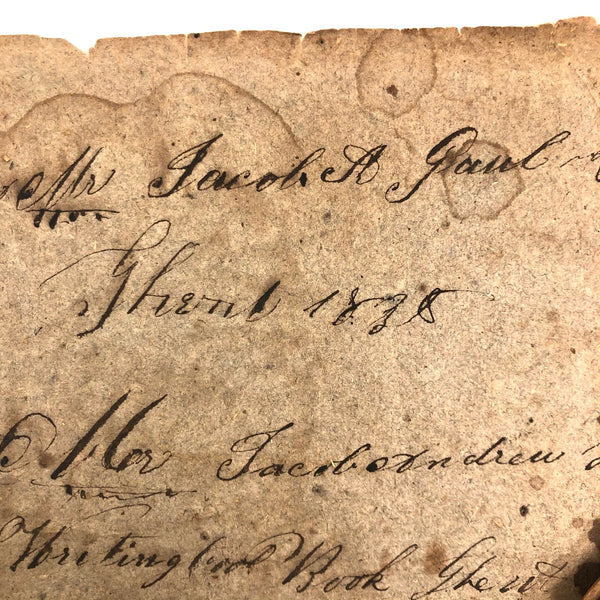 Mr Jacob A Paul
Ghent 1838
Mr Jacob Andrew
Writing Book Ghent